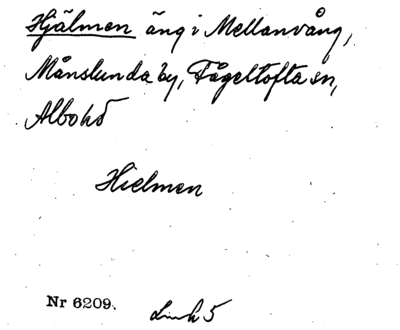 Hjälmen äng i Mellanvång,
Månslunda by, Fågeltofta sn,
Albo hd
Hielmen
Nr 6209. Link 5